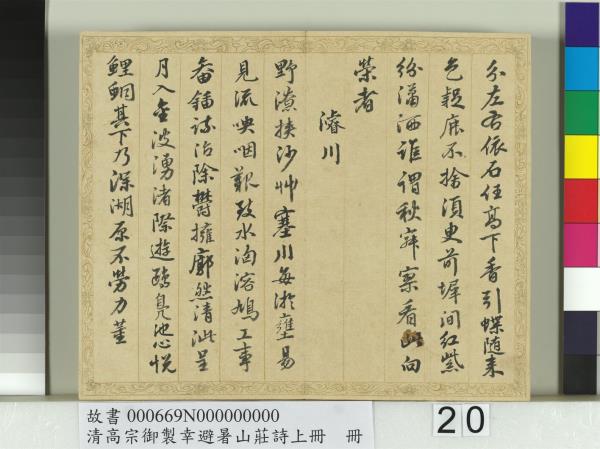 分左右依石任高下香引蝶随来
色親麻不捨須臾前墀間紅紫
紛瀟洒誰謂秋寂寞看此向
榮者
濬川
野潦挟沙艸塞川每淤壅易
見流哽咽艱致水洶溶鳩工事
畚鍤疏治除鬱擁廓然清泚呈
月入金波湧渚際遊鷗鳧池心悦
鯉鯝其下乃深湖原不勞力董
故書 000669N000000000
清高宗御製幸避暑山莊詩上冊 冊
20